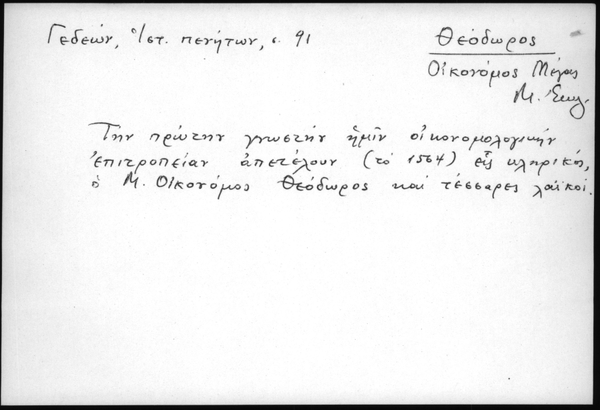 Γεδεών, Ἱστ. πενήτων, σ. 91
Θεόδωρος
Οἰκονόμος Μέγας
Μ. Ἐκκλ.
Τὴν πρώτην γνωστὴν ἡμῖν οἰκονομολογικὴν
ἐπιτροπείαν ἀπετέλουν (τὸ 1564) εἷς κληρικός,
ὁ Μ. Οἰκονόμος Θεόδωρος καὶ τέσσαρες λαϊκοί.